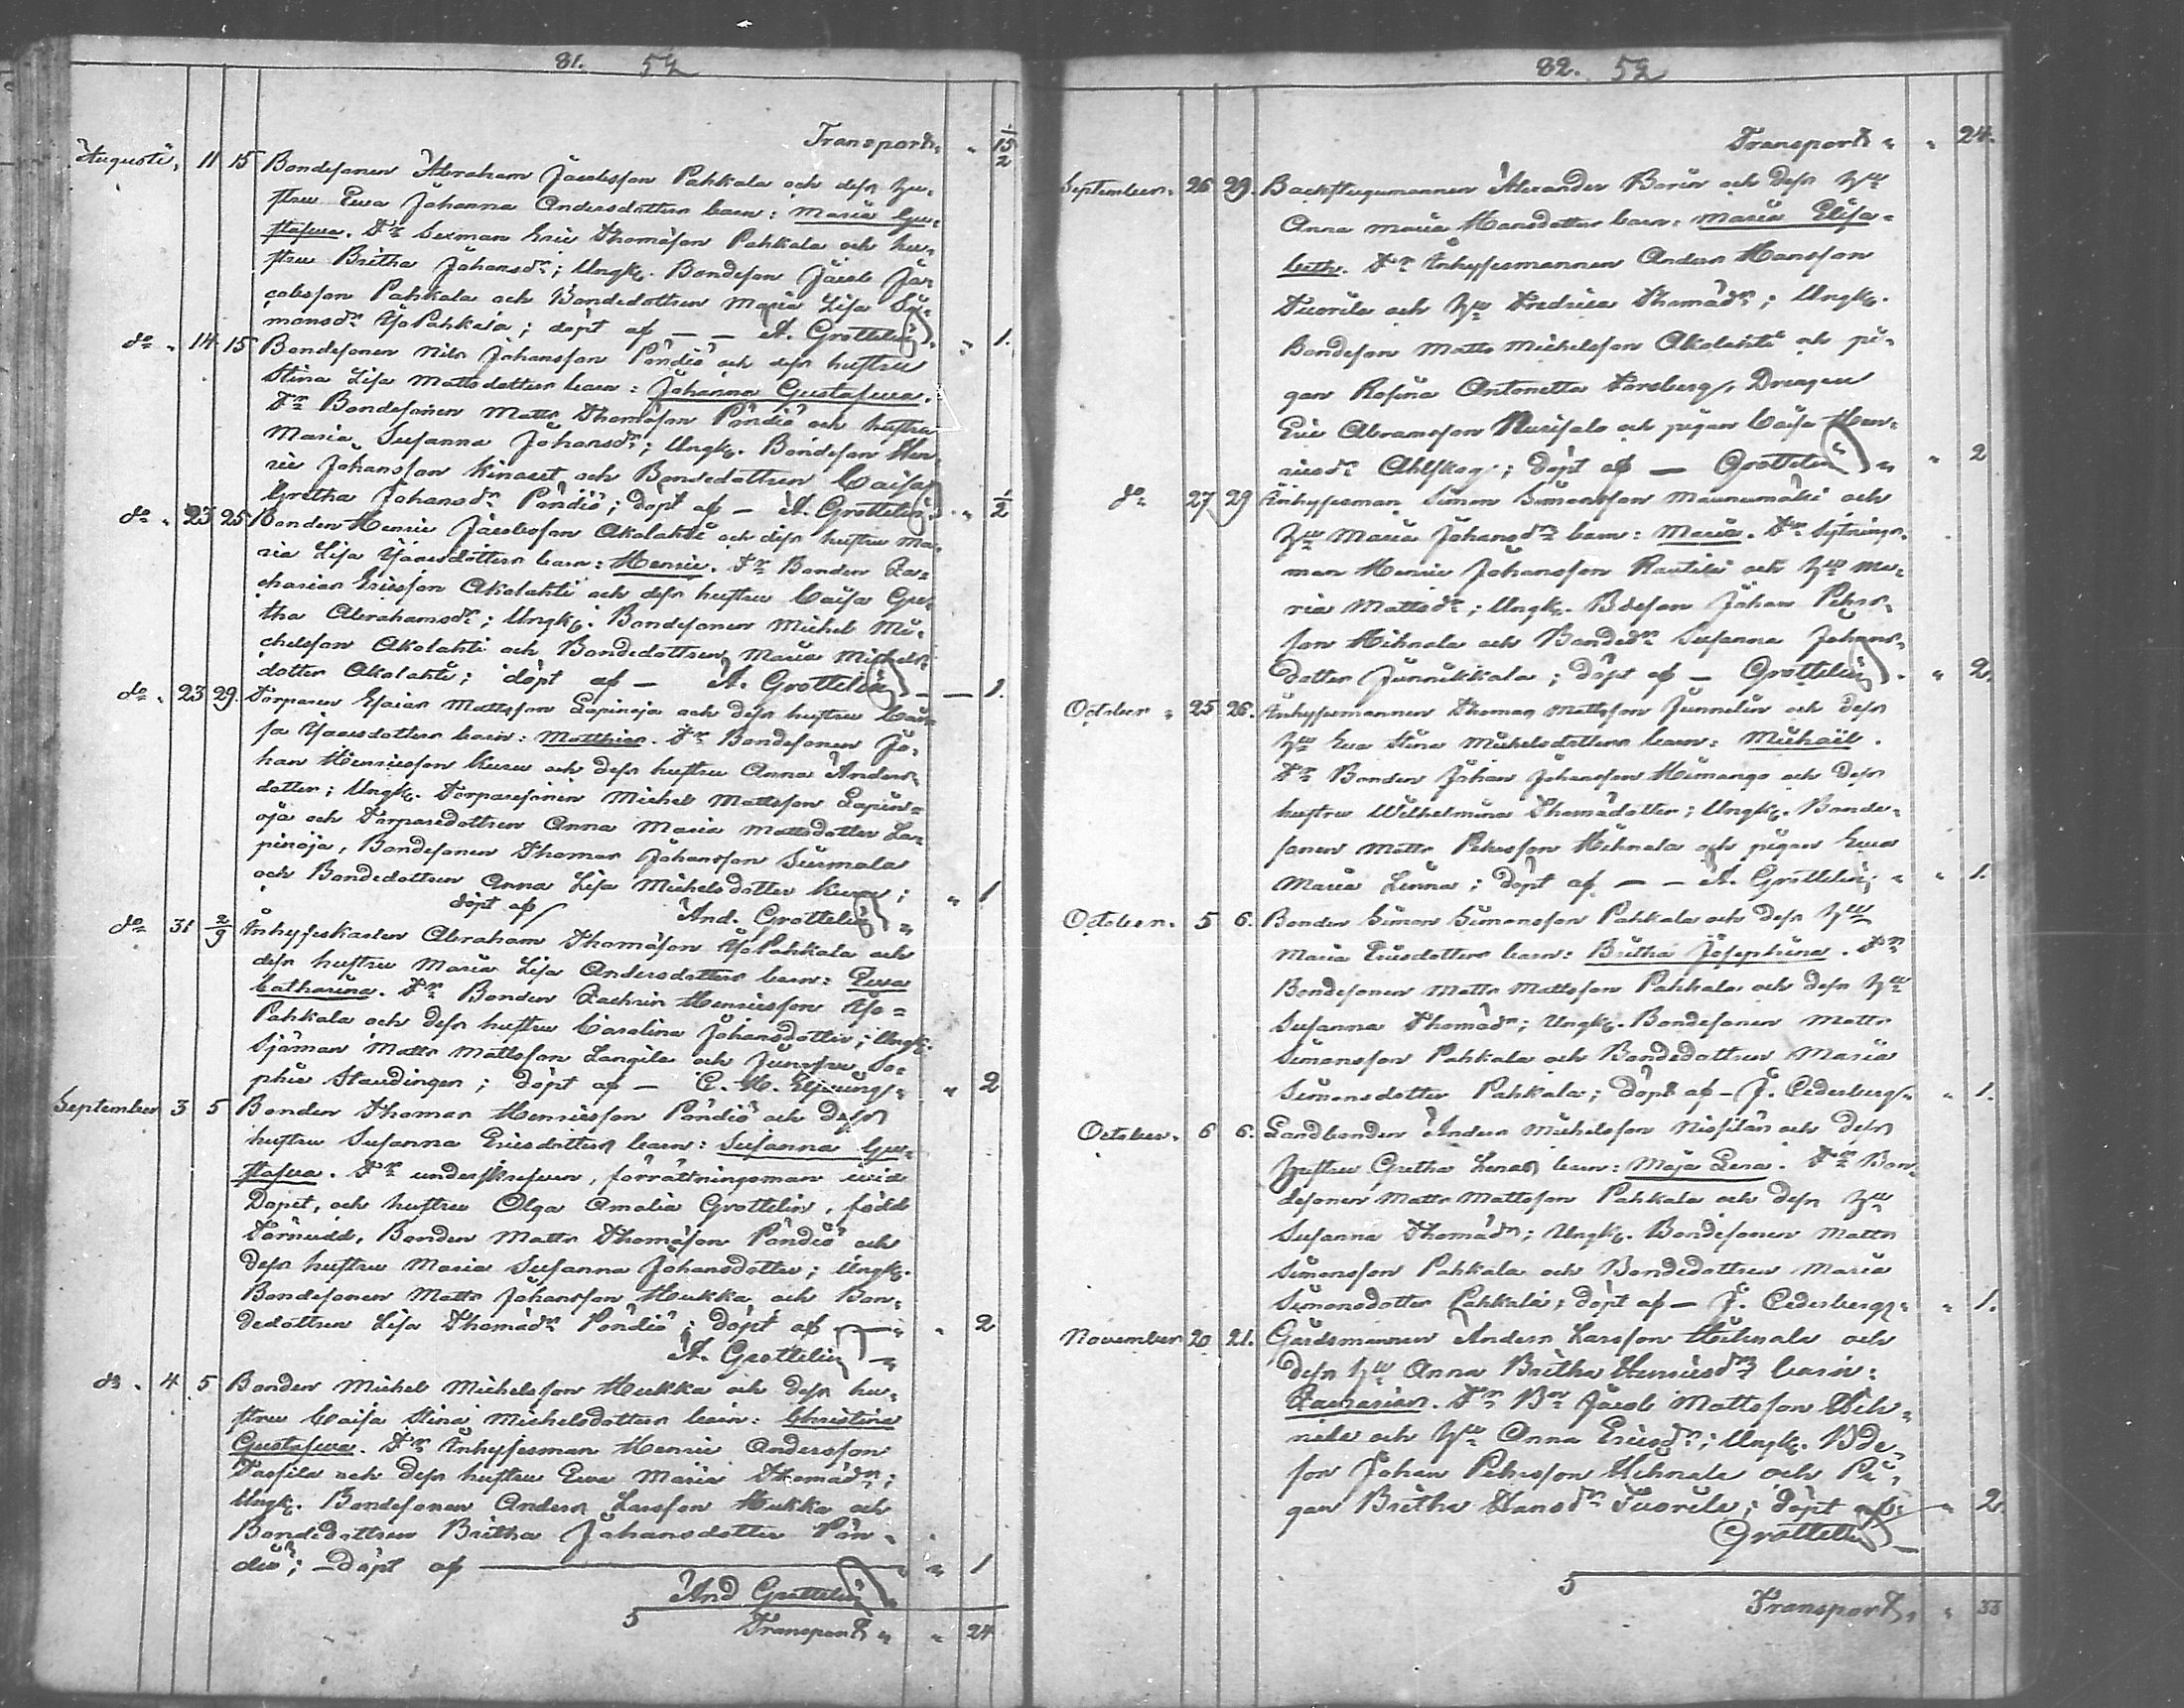 81. 52
Transport " " 15 1/2
Augusti, 11 15 Bondesonen Abraham Jacobsson Pahkala och dess hu-
stru Ewa Johanna Andersdotters barn: Maria Gu-
stafwa. Fr Sexman Eric Thomasson Pahkala och hu-
stru Britha Johansdr; Ungk. Bondeson Jacob Ja-
cobsson Pahkala och Bondedottren Maria Lisa Si-
monsdr YPahkala; döpt af — — A. Grottelin " 1.
do " 14 15 Bondesonen Nils Johansson Pöndiö och dess hustru
Stina Lisa Mattsdotters barn: Johanna Gustafwa.
Fr Bondesonen Matts Thomasson Pöndiö och hustru
Maria Susanna Johansdr; Ungk. Bondeson Hen-
ric Johansson Kinaret och Bondedottren Caisa
Gretha Johansdr Pöndiö; döpt af — A. Grottelin " 1/2
do " 23 25 Bonden Henric Jacobsson Akolahti och dess hustru Ma-
ria Lisa Isacsdotters barn: Henric. Fr Bonden Za-
charias Ericsson Akolahti och dess hustru Caisa Gre-
tha Abrahamsdr; Ungk. Bondesonen Michel Mi-
chelsson Akolahti och Bondedottren Maria Michels-
dotter Akolahti; döpt af — A. Grottelin — — 1.
do " 23 29. Torparen Esaias Mattsson Lapinoja och dess hustru Cai-
sa Isacsdotters barn: Matthias. Fr Bondesonen Jo-
han Henricsson Kuru och dess hustru Anna Anders-
dotter; Ungk. Torparesonen Michel Mattsson Lapin-
oja och Torparedottren Anna Maria Mattsdotter La-
pinoja, Bondesonen Thomas Johansson Surmala
och Bondedottren Anna Lisa Michelsdotter Kuru; " 1
döpt af And. Grottelin "
do 31 2/9 Inhyseskarlen Abraham Thomasson YPahkala och
dess hustru Maria Lisa Andersdotters barn: Ewa
Catharina. Fr Bonden Zachris Henricsson Yso-
Pahkala och dess hustru Carolina Johansdotter; Ungk.
Sjöman Matts Mattsson Langila och Jungfru So-
phie Staudinger; döpt af — C. H. " 2
September 3 5 Bonden Thomas Henricsson Pöndiö och dess
hustru Susanna Ericsdotters barn: Susanna Gu-
stafwa. Fr underskrefven, förrättningsman wid
Dopet, och hustru Olga Amalia Grottelin, född
Törnudd, Bonden Matts Thomasson Pöndiö och
dess hustru Maria Susanna Johansdotter; Ungk.
Bondesonen Matts Johansson Hukka och Bon-
dedottren Lisa Thomadr Pöndiö; döpt af — " 2
A. Grottelin —
do " 4 5 Bonden Michel Michelsson Hukka och dess hu-
stru Caisa Stina Michelsdotters barn: Christina
Gustafwa. Fr Inhysesman Henric Andersson
Tassila och dess hustru Ewa Maria Thomadr;
Ungk. Bondesonen Anders Larsson Hukka och
Bondedottren Britha Johansdotter Pön-
diö; — Döpt af — " 1
And Grottelin
5 Transport " " 24
82. 52
Transport " " 24.
September. 26 29. Backstugumannen Alexander Borin och dess Hu
Anna Maria Hansdotter barn: Maria Elisa-
beth. Fr Inhysesmannen Anders Hansson
Tuorila och Hu Fredrica Thomadr; Ungk.
Bondeson Matts Michelsson Akolahti och pi-
gan Rosina Antonetta Forsberg, Drengen
Eric Abramsson Nurisalo och pigan Caisa Hen-
ricsdr Ahlskog; döpt af — Grottelin " " 2
do 27 29 Inhysesman Simon Simonsson Maunumäki och
Hu Maria Johansdrs barn: Maria. Fr Sytnings-
man Henric Johansson Rautila och Hu Ma-
ria Mattsdr; Ungk. Bdeson Johan Pehrs-
son Hihnala och Bondedr Susanna Johans-
dotter Junnikkala; döpt af — Grottelin " 2.
October " 25 26. Inhysesmannen Thomas Mattsson Junnelin och dess
Hu Ewa Stina Michelsdotters barn: Michaël.
Fr Bonden Johan Johansson Himango och dess
hustru Wilhelmina Thomadotter; Ungk. Bonde-
sonen Matts Pehrsson Hihnala och pigan Ewa
Maria Linna; döpt af — — A. Grottelin " " 1.
October. 5 6. Bonden Simon Simonsson Pahkala och dess Hu
Maria Ericsdotters barn: Britha Josephina. Fr
Bondesonen Matts Mattsson Pahkala och dess Hu
Susanna Thomadr; Ungk. Bondesonen Matts
Simonsson Pahkala och Bondedottren Maria
Simonsdotter Pahkala; döpt af — J. Cederberg " 1.
October. 6 6. Landbonden Anders Michelsson Nissilän och dess
hustru Gretha Lenas barn: Maja Lena. Fr Bon-
desonen Matts Mattsson Pahkala och dess Hu
Susanna Thomadr; Ungk. Bondesonen Matts
Simonsson Pahkala och Bondedottren Maria
Simonsdotter Pahkala; döpt af — J. Cederberg " 1.
November 20 21. Gårdsmannen Anders Larsson Hihnala och
dess Hu Anna Britha Henricsdrs barn:
Zacharias. Fr Bn Jacob Mattsson Wih-
nala och Hu Anna Ericsdr; Ungk. Bde-
son Johan Pehrsson Hihnala och Pi-
gan Britha Hansdr Tuorila; döpt af — " 2.
Grottelin —
5
Transport " " 33